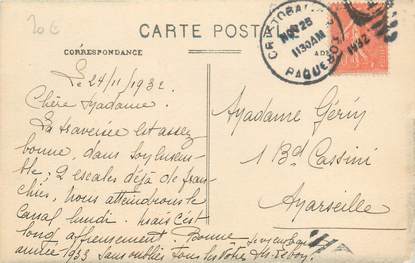 20 €
CARTE POSTALE
CORRESPONDANCE
CRISTOBAL
NOV 28
11 30 AM
1932
PAQUEBOT
Le 24/11/1932.
Chère Madame.
La traversée est assez
bonne, dans
2 escales déjà de fran-
chies, nous atteindrons le
Canal lundi. Mais c'est
long affreusement. Bonne
année 1933 Sans oublier tous les vôtres
Madame Gérin
1 Bd Cassini
Marseille